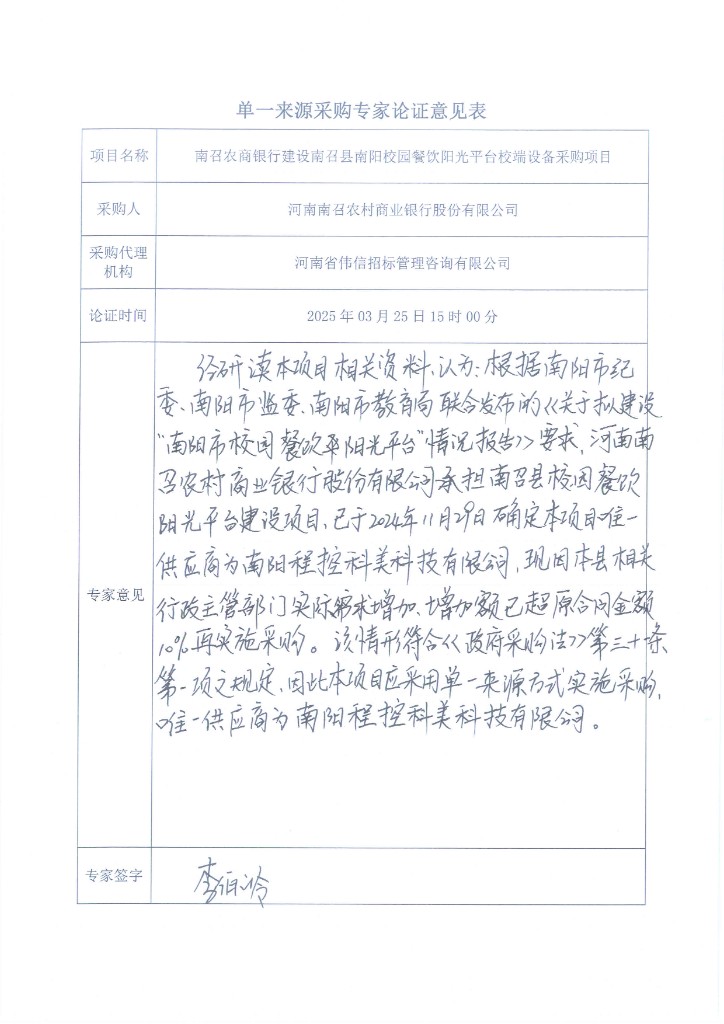 单一来源采购专家论证意见表
项目名称 南召农商银行建设南召县南阳校园餐饮阳光平台校端设备采购项目
采购人 河南南召农村商业银行股份有限公司
采购代理
机构 河南省伟信招标管理咨询有限公司
论证时间 2025年03月25日15时00分
专家意见
经研读本项目相关资料,认为:根据南阳市纪
委、南阳市监委、南阳市教育局联合发布的《关于拟建设
"南阳市校园餐饮阳光平台"情况报告》要求,河南南
召农村商业银行股份有限公司承担南召县校园餐饮
阳光平台建设项目,已于2024年11月29日确定本项目唯一
供应商为南阳程控科美科技有限公司,现因本县相关
行政主管部门实际需求增加,增加额已超原合同金额
10%再实施采购。该情形符合《政府采购法》第三十一条
第一项之规定,因此本项目应采用单一来源方式实施采购,
唯一供应商为南阳程控科美科技有限公司。
专家签字